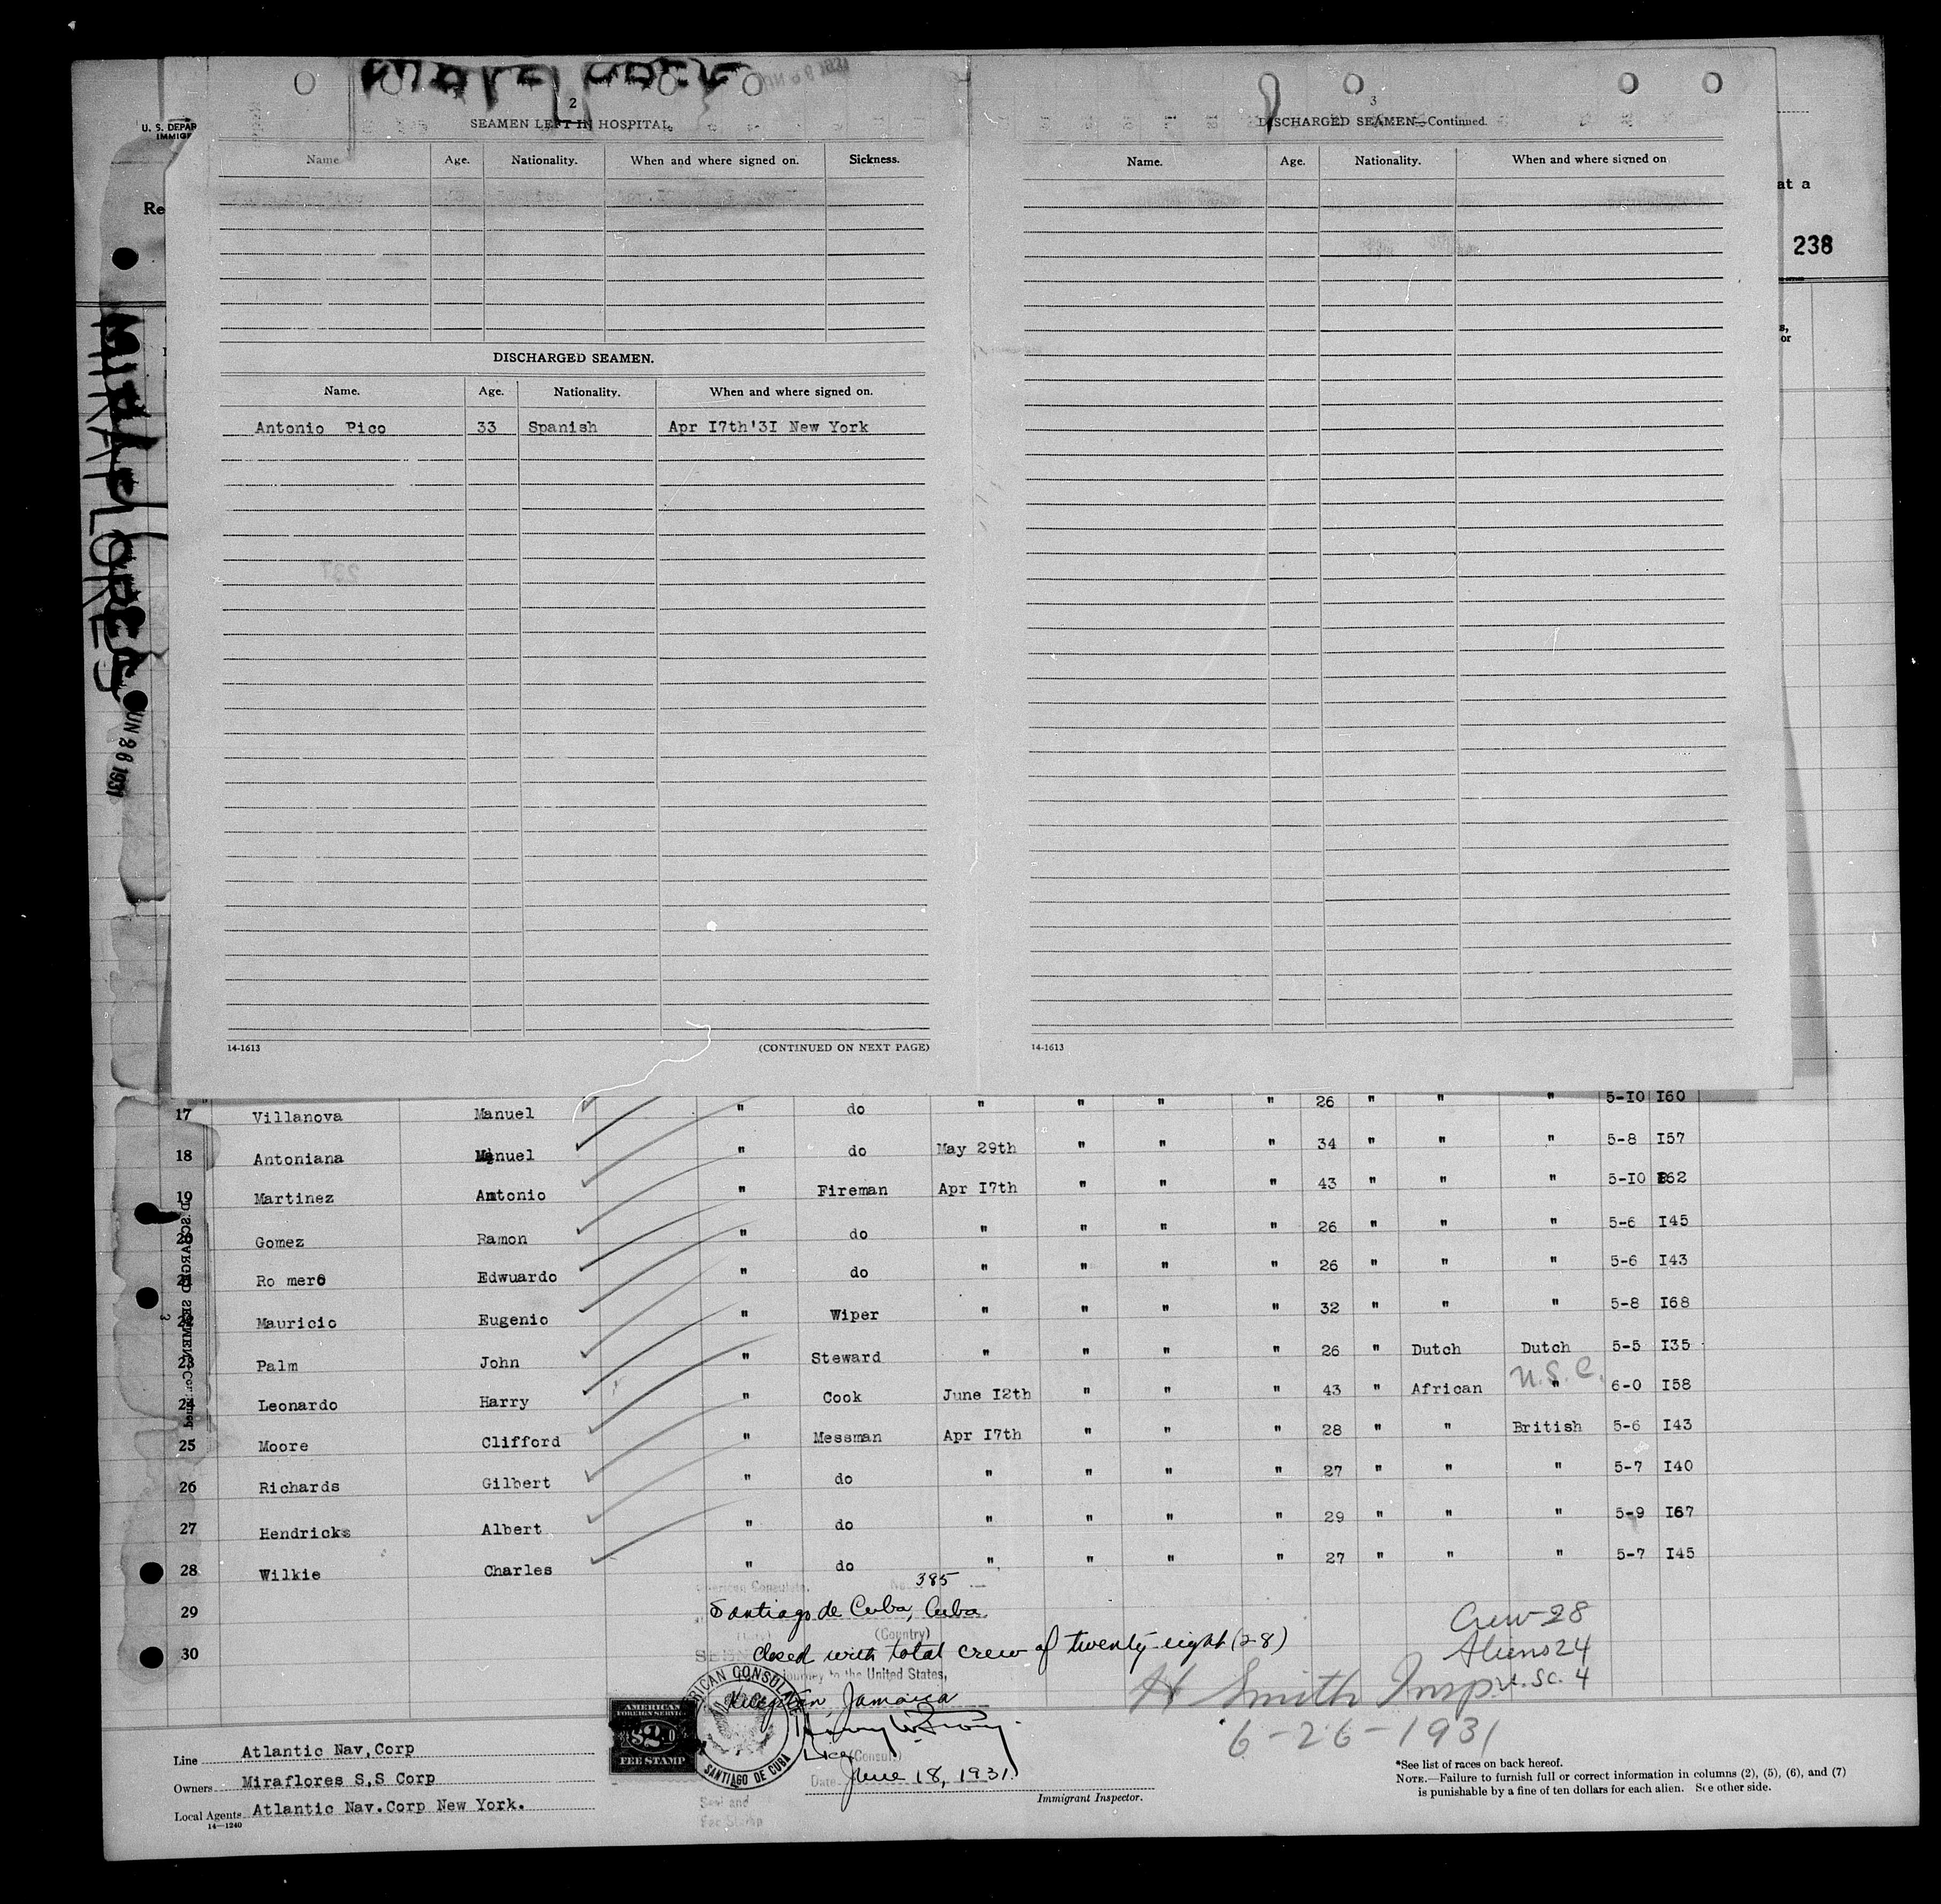 2
SEAMEN LEFT IN HOSPITAL
Name Age. Nationality. When and where signed on. Sickness.
DISCHARGED SEAMEN.
Name. Age. Nationality. When and where signed on.
Antonio Pico 33 Spanish Apr I7th'3I New York
14-1613 (CONTINUED ON NEXT PAGE)
3
DISCHARGED SEAMEN—Continued.
Name. Age. Nationality. When and where signed on
14-1613
U. S. DEPAR
IMMIG
Re
at a
238
s,
or
MIRAFLORES
JUN 26 1931
17 Villanova Manuel " do " " " " 26 " " " 5-I0 I60
18 Antoniana Manuel " do May 29th " " " 34 " " " 5-8 I57
19 Martinez Antonio " Fireman Apr I7th " " " 43 " " " 5-I0 I62
20 Gomez Ramon " do " " " " 26 " " " 5-6 I45
21 Ro mero Edwuardo " do " " " " 26 " " " 5-6 I43
22 Mauricio Eugenio " Wiper " " " " 32 " " " 5-8 I68
23 Palm John " Steward " " " " 26 " Dutch Dutch 5-5 I35
24 Leonardo Harry " Cook June I2th " " " 43 " African " U.S.C. 6-0 I58
25 Moore Clifford " Messman Apr I7th " " " 28 " " British 5-6 I43
26 Richards Gilbert " do " " " " 27 " " " 5-7 I40
27 Hendricks Albert " do " " " " 29 " " " 5-9 I67
28 Wilkie Charles " do " " " " 27 " " " 5-7 I45
29
30
American Consulate, No. 385
Santiago de Cuba, Cuba.
(Country)
Closed with total crew of twenty eight (28)
journey to the United States,
Jamaica
Vice (Consul)
Date June 18, 1931.
Seal and
Fee Stamp
AMERICAN
FOREIGN SERVICE
$2.0
FEE STAMP
AMERICAN CONSULATE
SANTIAGO DE CUBA
Crew-28
Aliens 24
U.SC. 4
H Smith Insp
6-26-1931
Immigrant Inspector.
Line Atlantic Nav,Corp
Owners Miraflores S,S Corp
Local Agents Atlantic Nav.Corp New York.
14—1240
*See list of races on back hereof.
NOTE.—Failure to furnish full or correct information in columns (2), (5), (6), and (7)
is punishable by a fine of ten dollars for each alien. See other side.